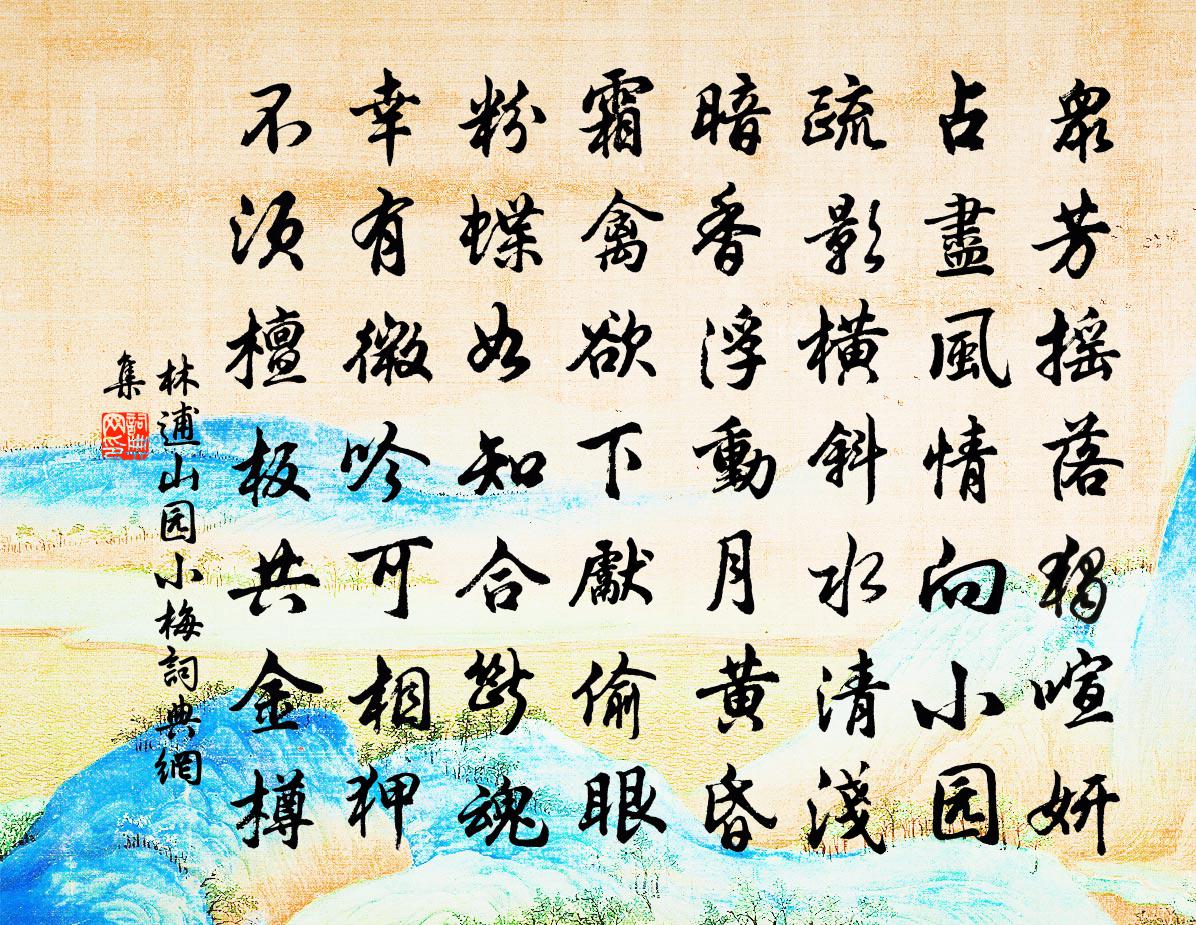 衆芳摇落獨喧妍
占盡風情向小园
疏影橫斜水清淺
暗香浮動月黃昏
霜禽欲下獻偷眼
粉蝶如知合斷魂
幸有微吟可相狎
不須檀板共金樽
林逋山园小梅詞典網
集
詞典